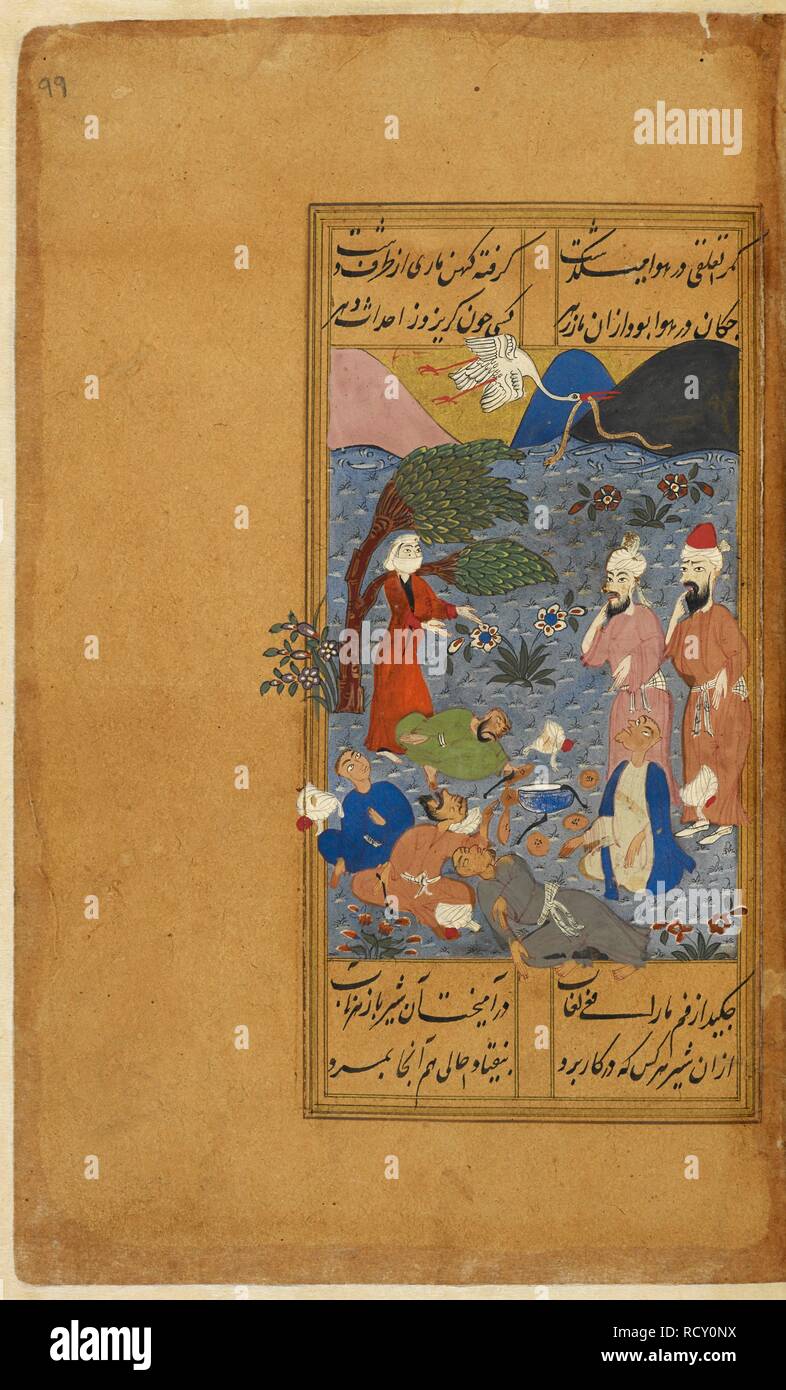 99
مکر لقلقی در هوا میکذشت گرفته کهن ماری از طرف دشت
چکان در هوا بود ازان مار زهر کسی چون کریزد ز احداث دهر
چکید از فم مار افعی لعاب در آمیخت آن شیر با زهر ناب
ازان شیر هر کس که در کار برد بیفتاد و حالی هم آنجا بمرد
alamy
alamy
alamy
Image ID: RCY0NX
www.alamy.com